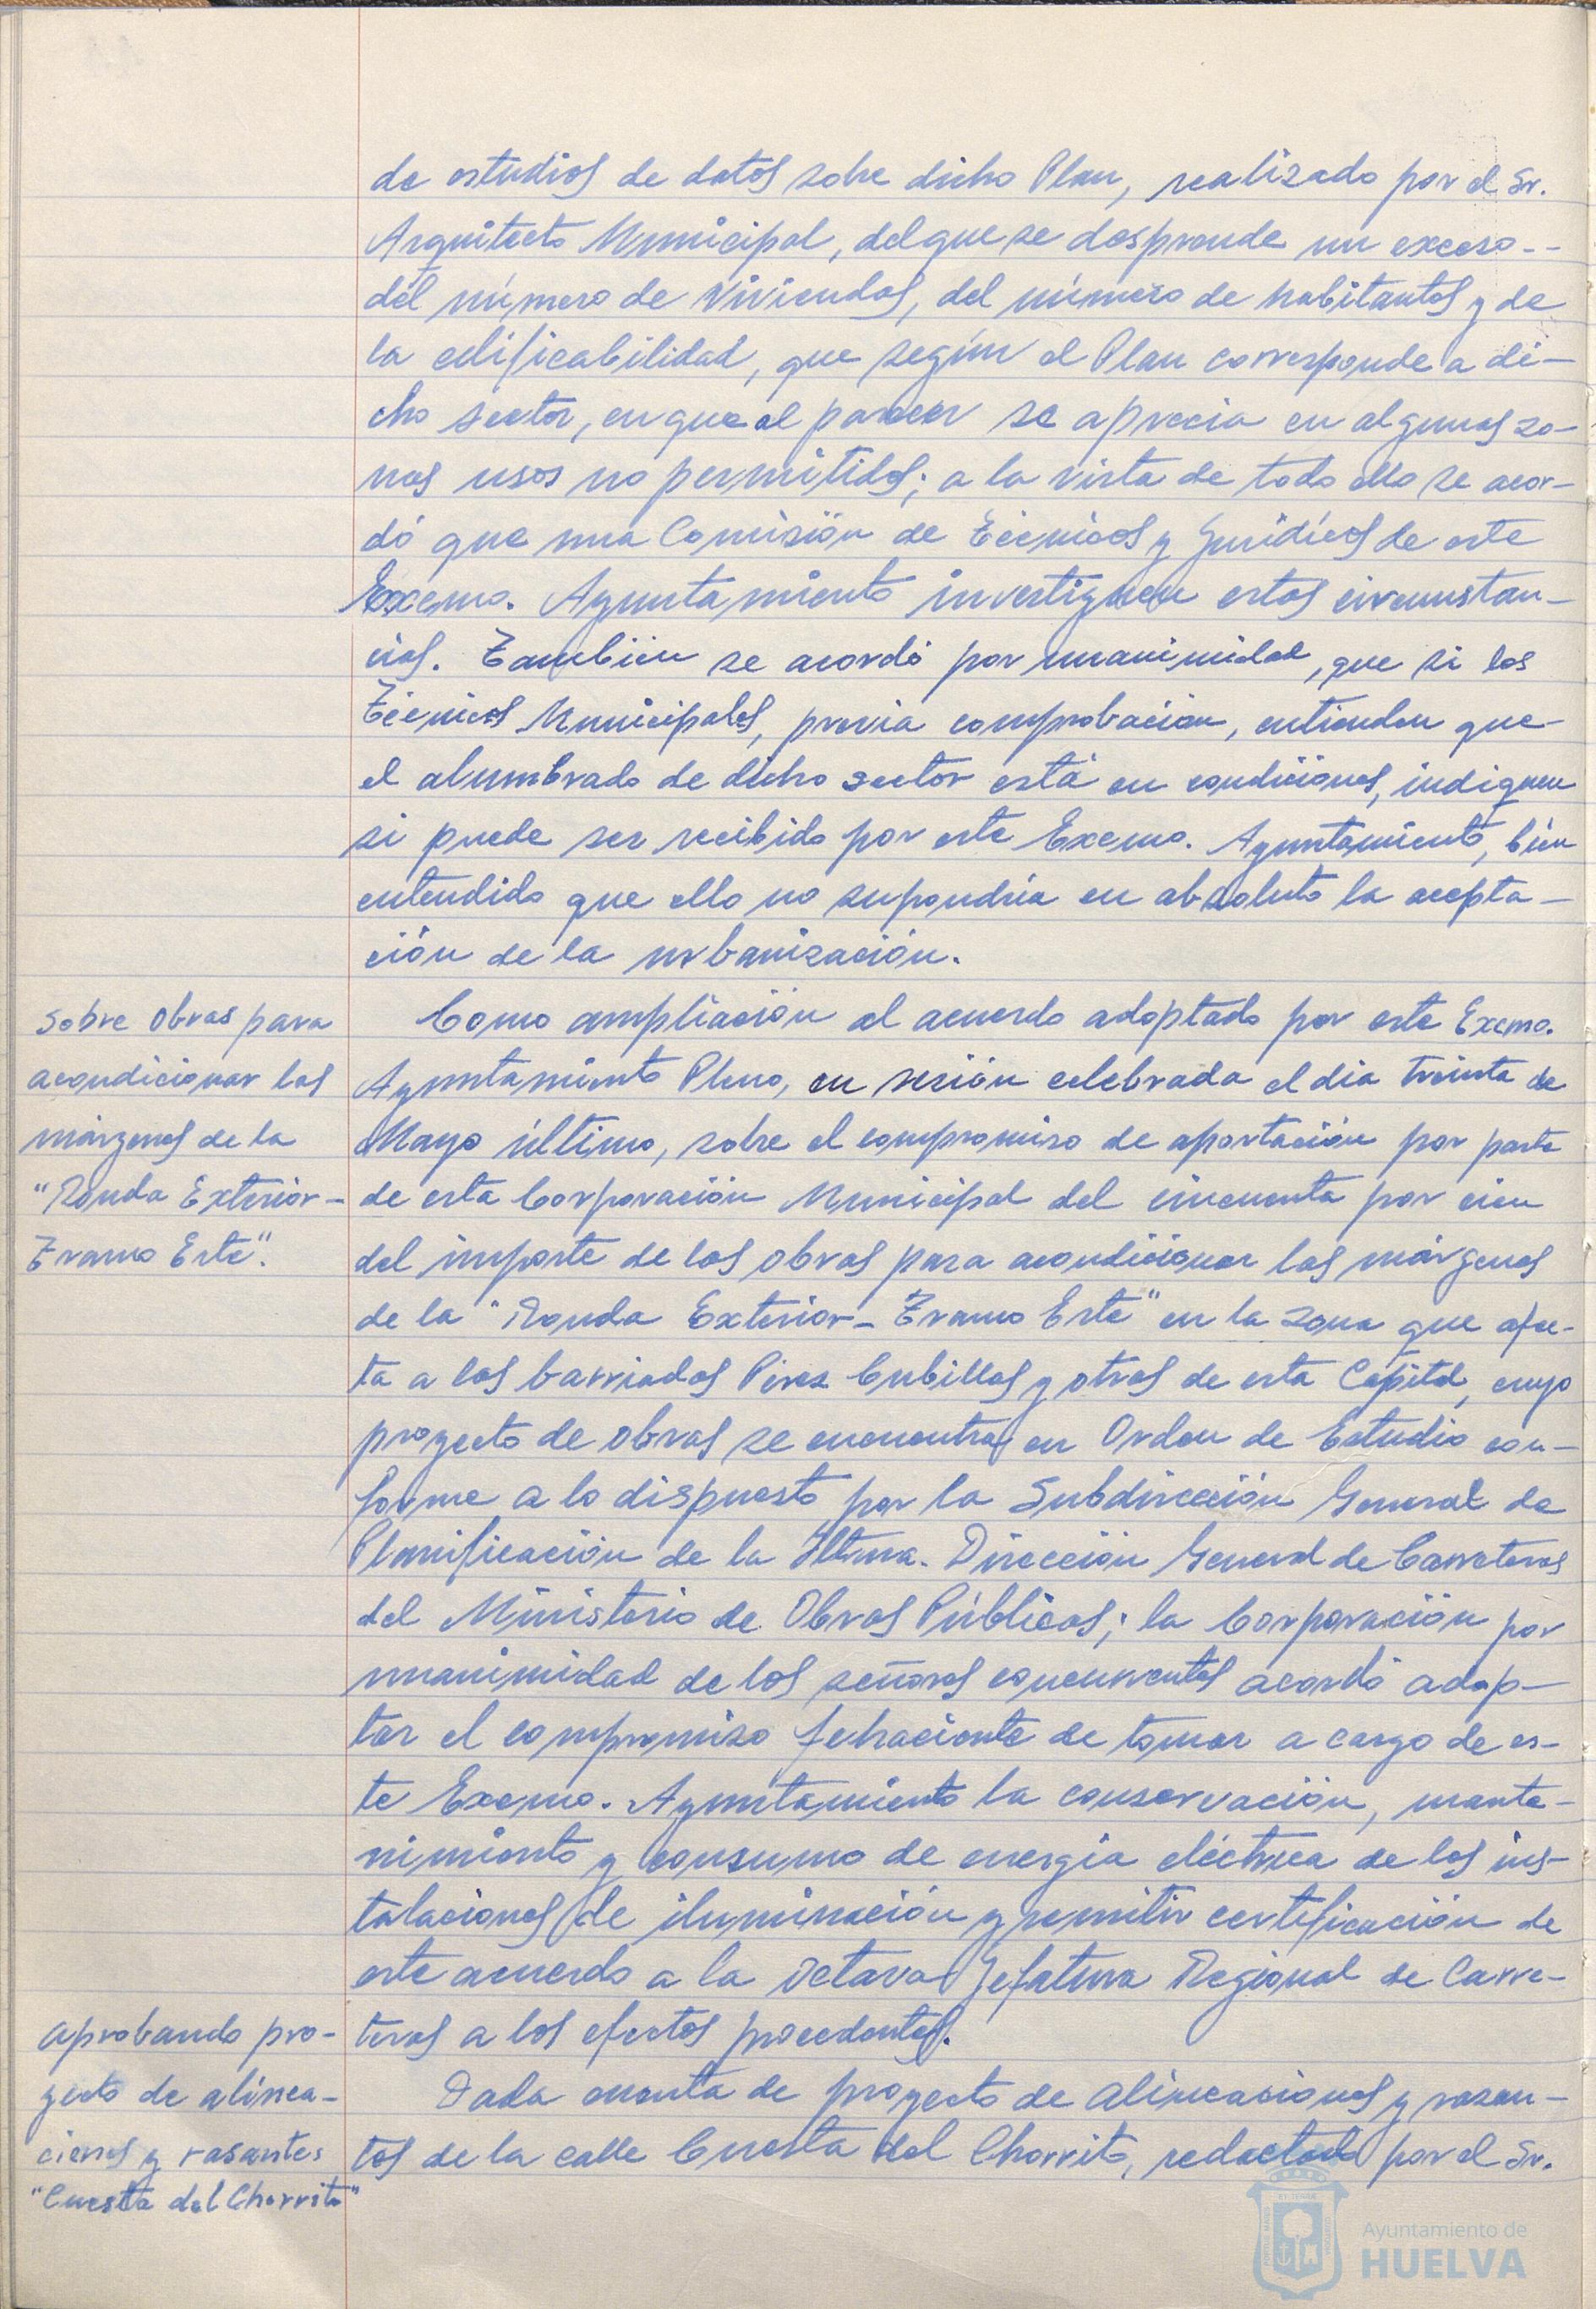 de estudios de datos sobre dicho Plan, realizado por el Sr.
Arquitecto Municipal, del que se desprende un exceso--
del número de viviendas, del número de habitantes y de
la edificabilidad, que según el Plan corresponde a di-
cho sector, en que al parecer se aprecia en algunas zo-
nas usos no permitidos; a la vista de todo ello se acor-
dó que una Comisión de Técnicos y Jurídicos de este
Excmo. Ayuntamiento investiguen estas circunstan-
cias. También se acordó por unanimidad, que si los
Técnicos Municipales, previa comprobación, entienden que
el alumbrado de dicho sector está en condiciones, indiquen
si puede ser recibido por este Excmo. Ayuntamiento, bien
entendido que ello no supondría en absoluto la acepta-
ción de la urbanización.
Sobre obras para
acondicionar las
márgenes de la
"Ronda Exterior-
Tramo Este".
Como ampliación al acuerdo adoptado por este Excmo.
Ayuntamiento Pleno, en sesión celebrada el día treinta de
Mayo último, sobre el compromiso de aportación por parte
de esta Corporación Municipal del cincuenta por cien
del importe de las obras para acondicionar las márgenes
de la "Ronda Exterior-Tramo Este" en la zona que afec-
ta a las barriadas Pérez Cubillas y otras de esta Capital, cuyo
proyecto de obras se encuentra en Orden de Estudio con-
forme a lo dispuesto por la Subdirección General de
Planificación de la Iltma. Dirección General de Carreteras
del Ministerio de Obras Públicas; la Corporación por
unanimidad de los señores concurrentes acordó adop-
tar el compromiso fehaciente de tomar a cargo de es-
te Excmo. Ayuntamiento la conservación, mante-
nimiento y consumo de energía eléctrica de las ins-
talaciones de iluminación y remitir certificación de
este acuerdo a la Octava Jefatura Regional de Carre-
teras a los efectos procedentes.
Aprobando pro-
yecto de alinea-
ciones y rasantes
"Cuesta del Chorrito"
Dada cuenta de proyecto de alineaciones y rasan-
tes de la calle Cuesta del Chorrito, redactado por el Sr.
Ayuntamiento de
HUELVA